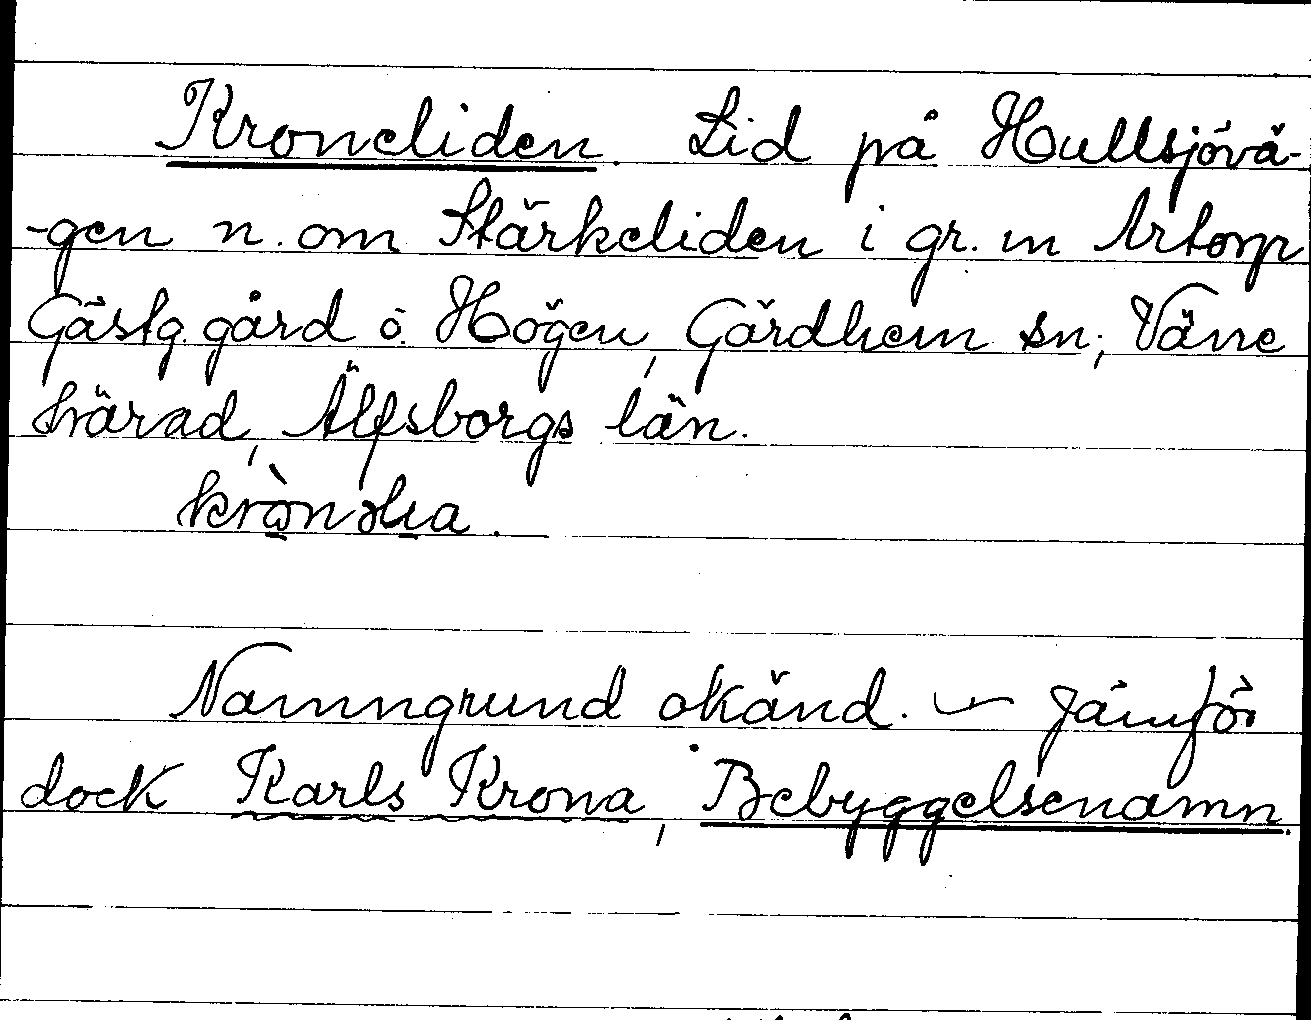 Kroneliden. Lid på Hullsjövä-
-gen n. om Stärkeliden i gr. m Artorp
Gästg. gård o. Högen, Gärdhem sn; Väne
härad, Älfsborgs län.
Namngrund okänd. ~ Jämför
dock Karls Krona, Bebyggelsenamn.